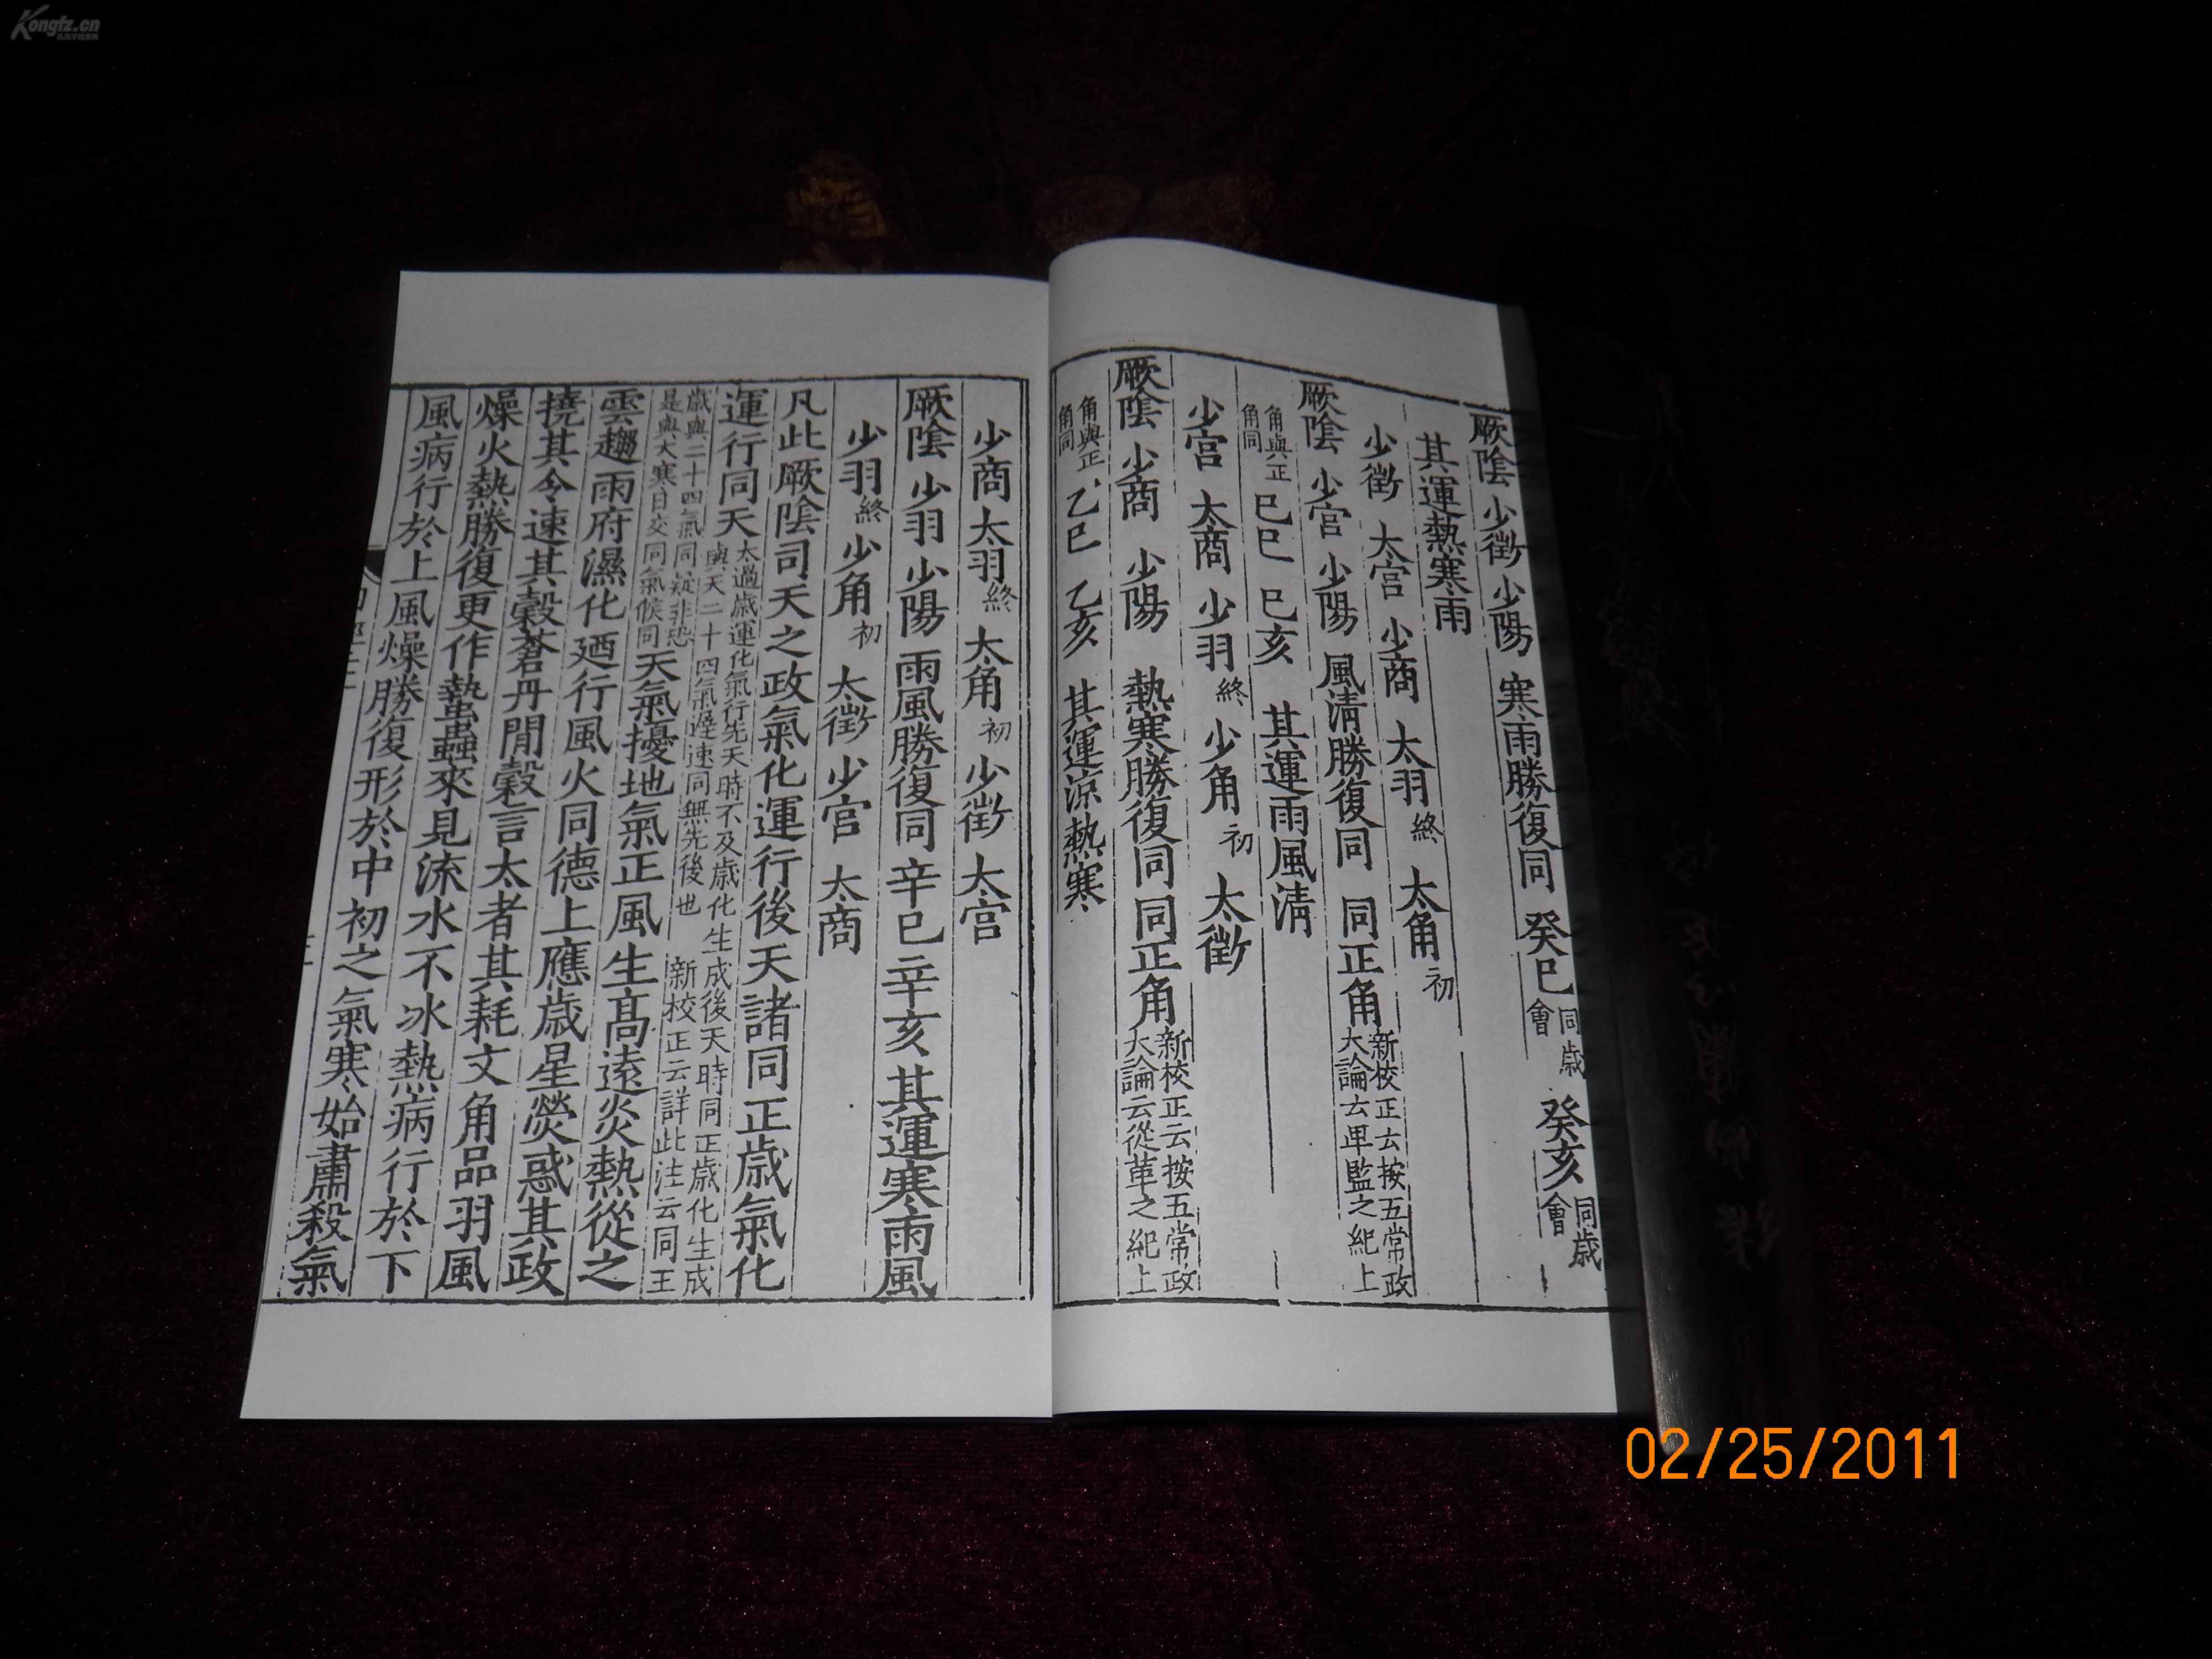 Kongfz.cn
厥陰 少徵 少陽 寒雨勝復同 癸巳 同歲會 癸亥 同歲會
其運熱寒雨
少徵 太宮 少商 太羽 終 太角 初
厥陰 少宮 少陽 風清勝復同 同正角 新校正云按五常政大論云卑監之紀上
角與正角同 己巳 己亥 其運雨風清
少宮 太商 少羽 終 少角 初 太徵
厥陰 少商 少陽 熱寒勝復同 同正角 新校正云按五常政大論云從革之紀上
角與正角同 乙巳 乙亥 其運涼熱寒
少商 太羽 終 太角 初 少徵 太宮
厥陰 少羽 少陽 雨風勝復同 辛巳 辛亥 其運寒雨風
少羽 終 少角 初 太徵 少宮 太商
凡此厥陰司天之政氣化運行後天諸同正歲氣化
運行同天 太過歲運化氣行先天時不及歲化生成後天時同正歲化生成與天二十四氣遲速同無先後也 新校正云詳此注云同王
歲與二十四氣同疑非恐是與大寒日交同氣候同 天氣擾地氣正風生高遠炎熱從之
雲趨雨府濕化迺行風火同德上應歲星熒惑其政
撓其令速其穀蒼丹間穀言太者其耗文角品羽風
燥火熱勝復更作蟄蟲來見流水不冰熱病行於下
風病行於上風燥勝復形於中 初之氣寒始肅殺氣
02/25/2011